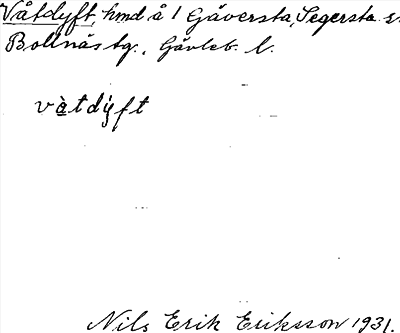 Våtdyft, hmd å 1 Gåversta, Segersta s.
Bollnäs tg., Gävleb. l.
vàtdy̆ft
Nils Erik Eriksson 1931.